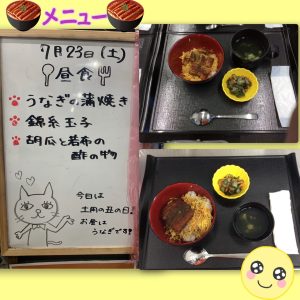 メニュー
7月23日(土)
昼食
うなぎの蒲焼き
錦糸玉子
胡瓜と若布の
酢の物
今日は
土用の丑の日♪
お昼は
うなぎです!!